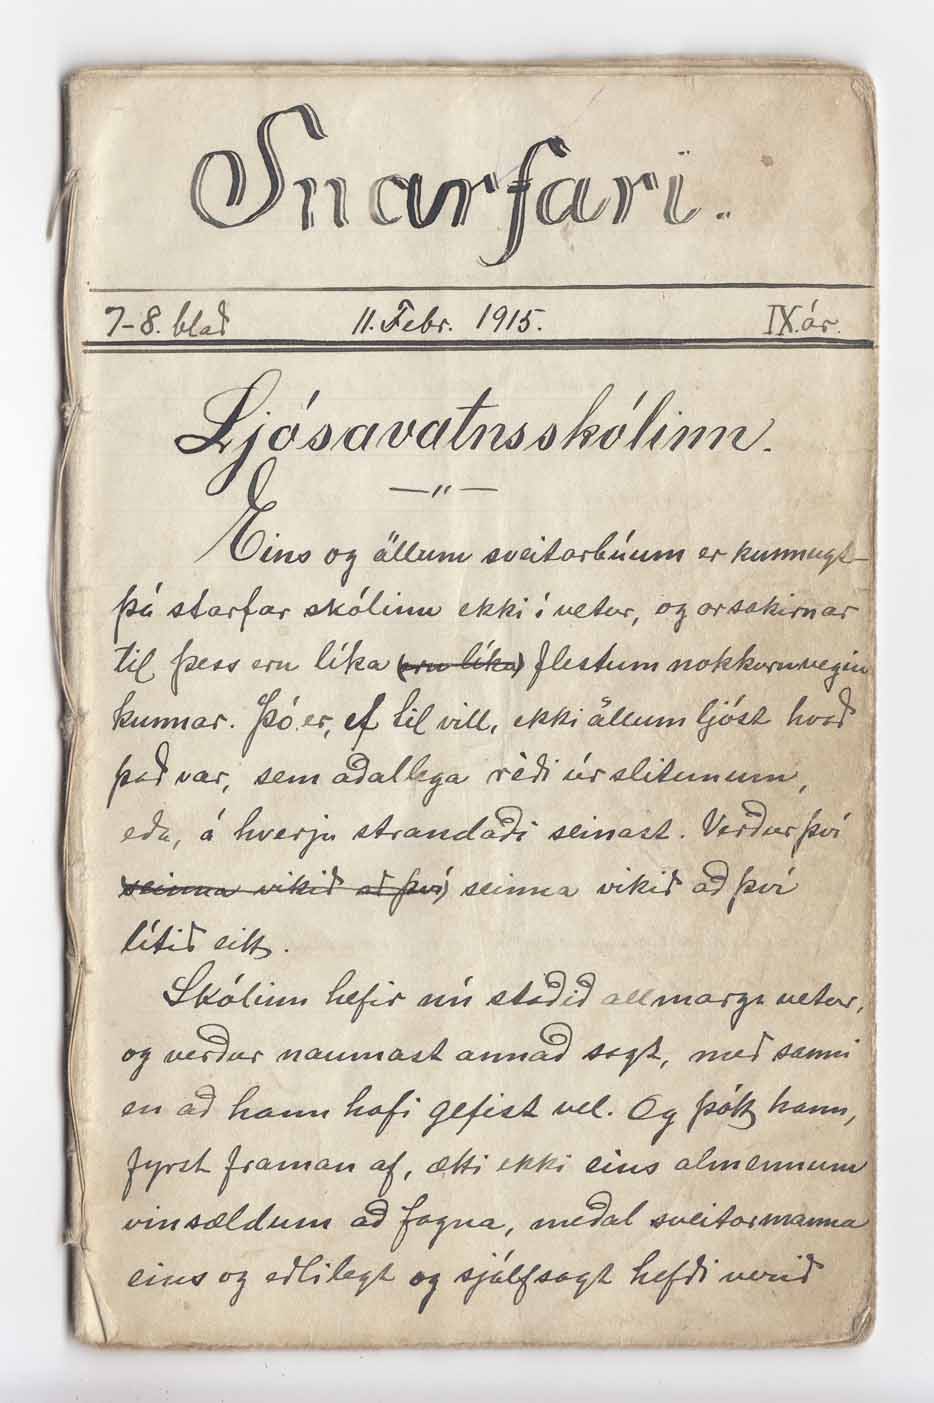 Snarfari.
7-8. blað 11. Febr. 1915. IX. ár.
Ljósavatnsskólinn.
Eins og öllum sveitarbúum er kunnugt
þá starfar skólinn ekki í vetur, og orsakirnar
til þess eru líka (eru líka) flestum nokkurnvegin
kunnar. Þó er, ef til vill, ekki öllum ljóst hvað
það var, sem aðallega réði úrslitunum,
eða, á hverju strandaði seinast. Verður því
seinna vikið að því) seinna vikið að því
lítið eitt.
Skólinn hefir nú staðið allmarga vetur,
og verður naumast annað sagt, með sanni
en að hann hafi gefist vel. Og þótt hann,
fyrst framan af, ætti ekki eins almennum
vinsældum að fagna, meðal sveitarmanna
eins og eðlilegt og sjálfsagt hefði verið